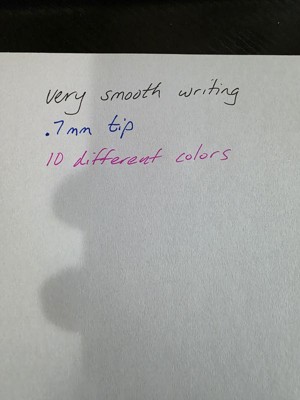 very smooth writing
.7mm tip
10 different colors